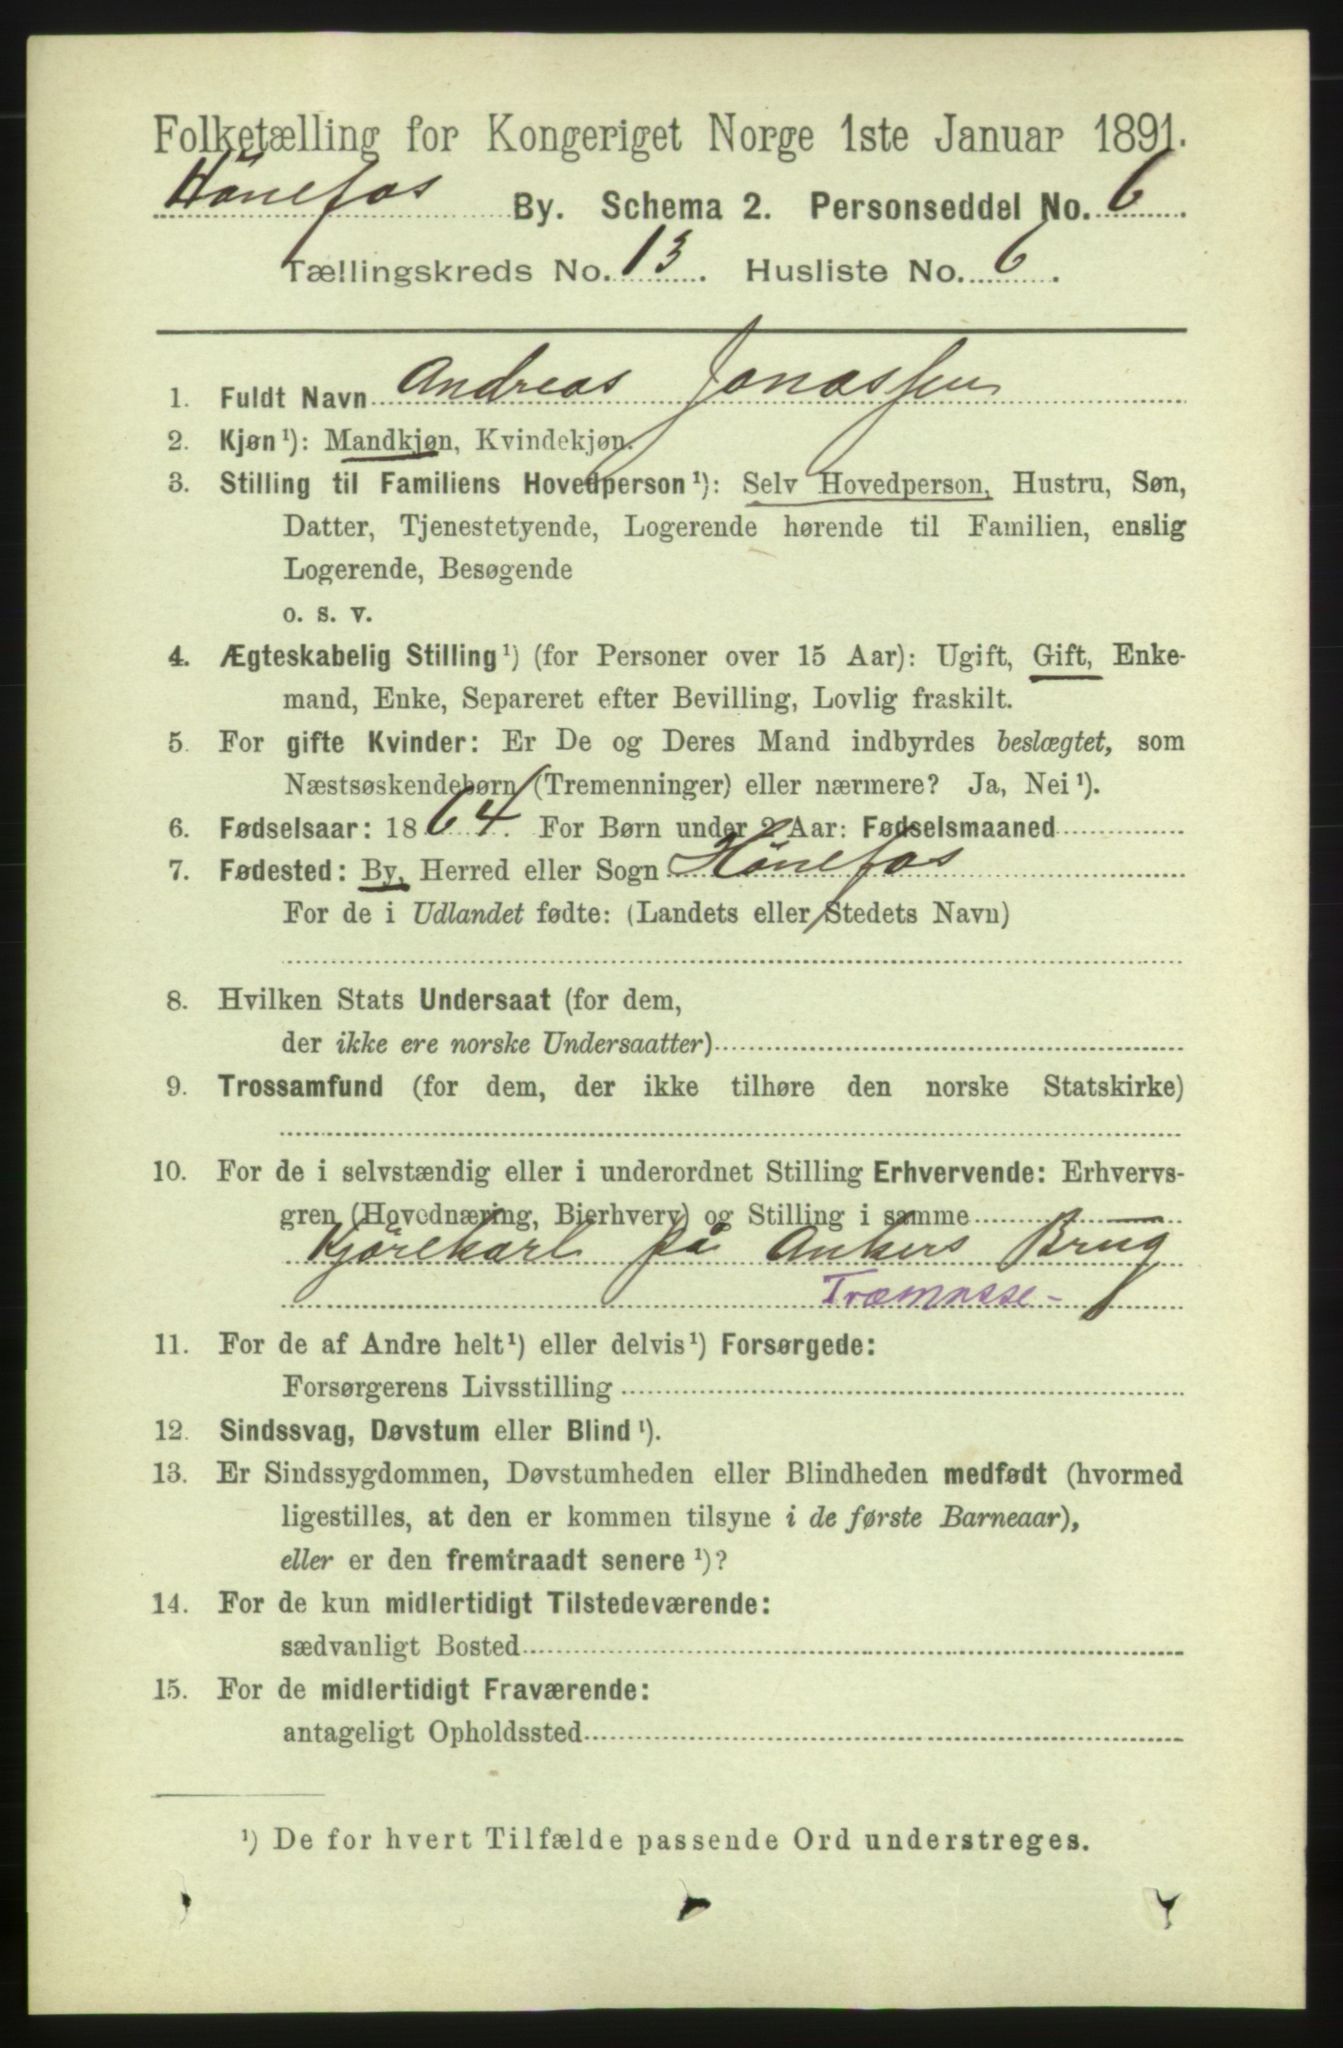 Folketælling for Kongeriget Norge 1ste Januar 1891.
Hönefos By. Schema 2. Personseddel No. 6
Tællingskreds No. 13. Husliste No. 6.
1. Fuldt Navn Andreas Jonassen
2. Kjøn¹): Mandkjøn, Kvindekjøn.
3. Stilling til Familiens Hovedperson¹): Selv Hovedperson, Hustru, Søn,
Datter, Tjenestetyende, Logerende hørende til Familien, enslig
Logerende, Besøgende
o. s. v.
4. Ægteskabelig Stilling¹) (for Personer over 15 Aar): Ugift, Gift, Enke-
mand, Enke, Separeret efter Bevilling, Lovlig fraskilt.
5. For gifte Kvinder: Er De og Deres Mand indbyrdes beslægtet, som
Næstsøskendebørn (Tremenninger) eller nærmere? Ja, Nei¹).
6. Fødselsaar: 1864. For Børn under 2 Aar: Fødselsmaaned
7. Fødested: By, Herred eller Sogn Hönefos
For de i Udlandet fødte: (Landets eller Stedets Navn)
8. Hvilken Stats Undersaat (for dem,
der ikke ere norske Undersaatter)
9. Trossamfund (for dem, der ikke tilhøre den norske Statskirke)
10. For de i selvstændig eller i underordnet Stilling Erhvervende: Erhvervs-
gren (Hovednæring, Bierhverv) og Stilling i samme
Kjörekarl på Ankers Brug
Træmasse-
11. For de af Andre helt¹) eller delvis¹) Forsørgede:
Forsørgerens Livsstilling
12. Sindssvag, Døvstum eller Blind¹).
13. Er Sindssygdommen, Døvstumheden eller Blindheden medfødt (hvormed
ligestilles, at den er kommen tilsyne i de første Barneaar),
eller er den fremtraadt senere¹)?
14. For de kun midlertidigt Tilstedeværende:
sædvanligt Bosted
15. For de midlertidigt Fraværende:
antageligt Opholdssted
¹) De for hvert Tilfælde passende Ord understreges.